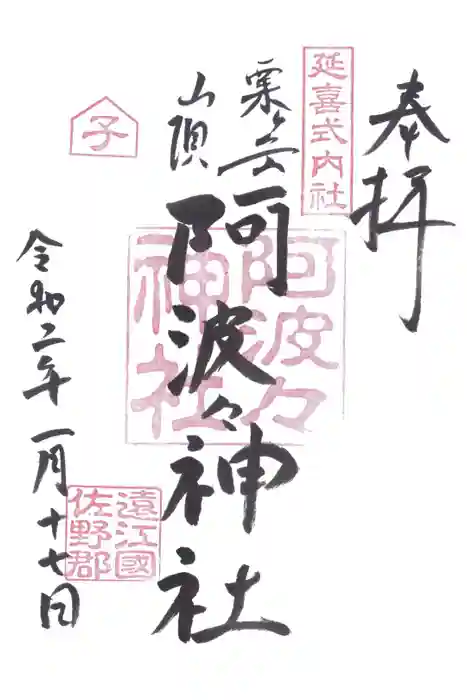 奉拝
延喜式内社
粟ヶ岳
山頂
阿波々神社
阿波々神社
子
令和二年一月十七日
遠江國
佐野郡